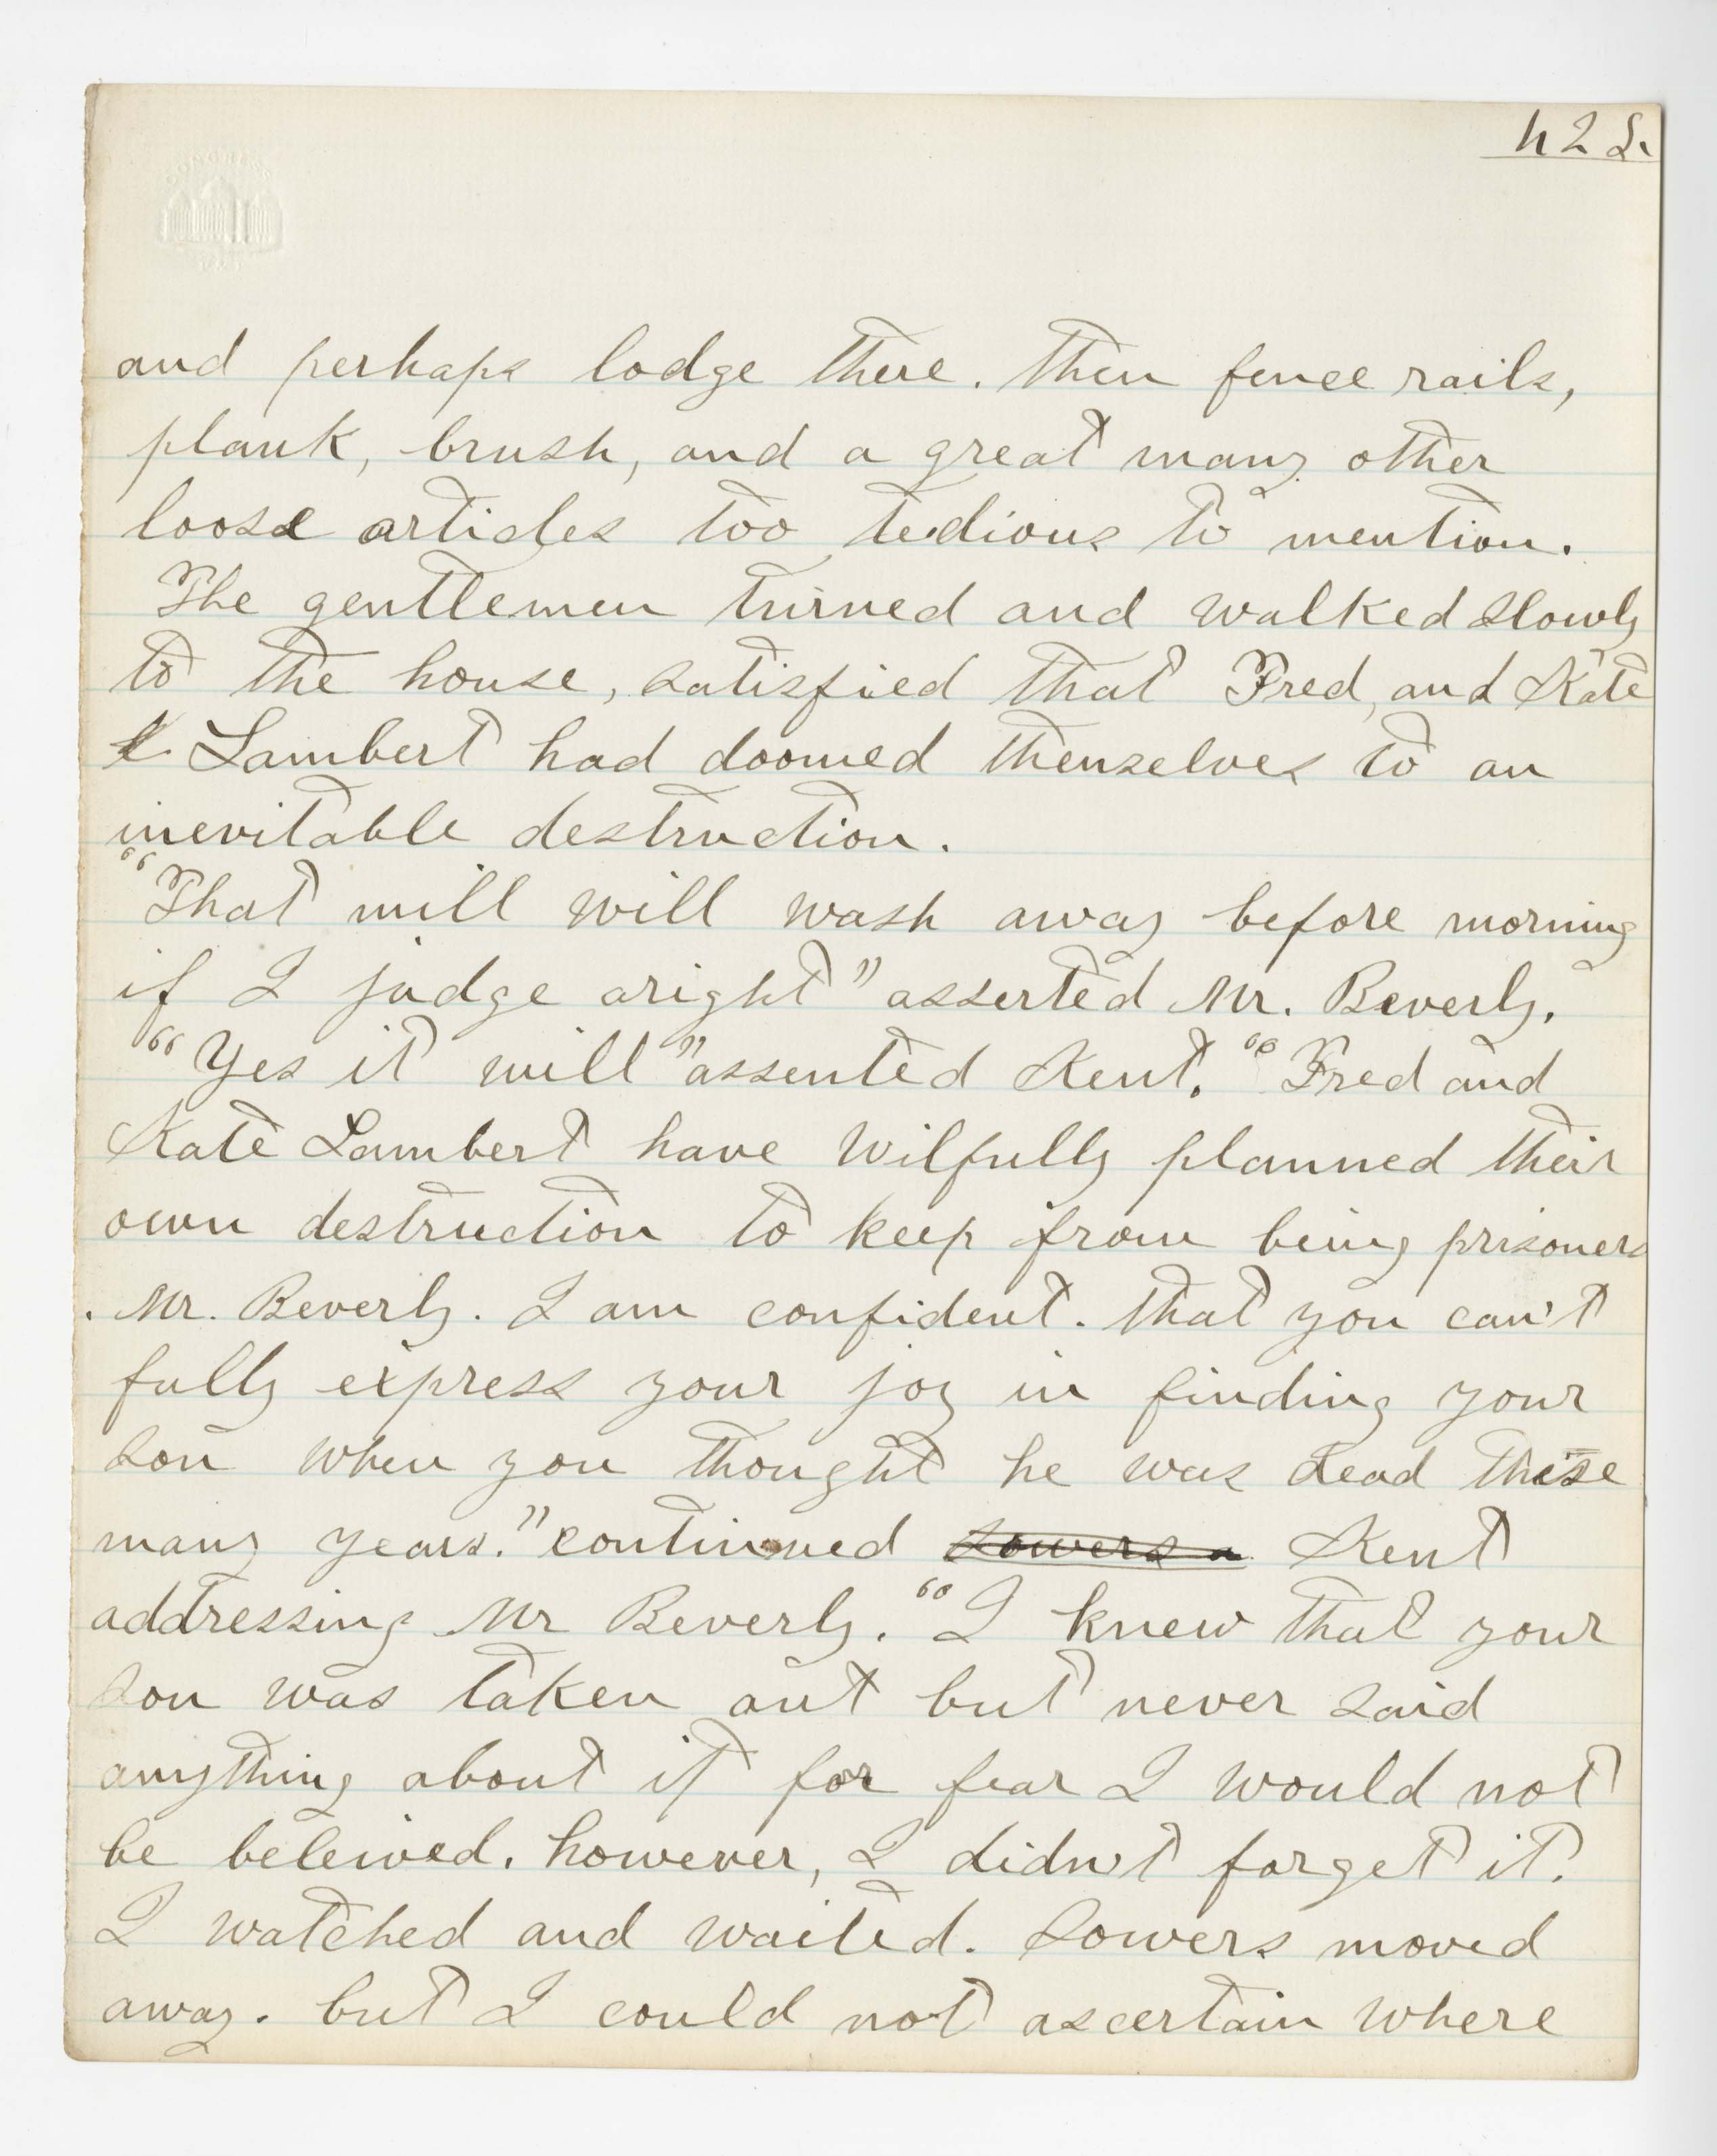 CONGRESS
and perhaps lodge there. Then fence rails,
plank, brush, and a great many other
loose articles too tedious to mention.
The gentlemen turned and walked slowly
to the house, satisfied that Fred, and Kate
Lambert had doomed themselves to an
inevitable destruction.
"That mill will wash away before morning
if I judge aright" asserted Mr. Beverly.
"Yes it will" assented Kent. "Fred and
Kate Lambert have wilfully planned their
own destruction to keep from being prisoners
. Mr. Beverly. I am confident. that you can't
fully express your joy in finding your
son when you thought he was dead these
many years." continued Sowers a Kent
addressing Mr Beverly. "I knew that your
son was taken out but never said
anything about it for fear I would not
be beleived. however, I didn't forget it.
I watched and waited. Sowers moved
away. but I could not ascertain where